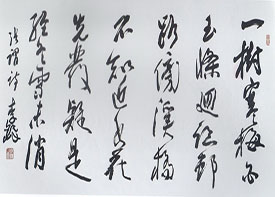 一樹寒梅白
玉條迥臨邨
路傍溪橋
不知近水花
先發疑是
經冬雪未消
張謂詩 李鐸